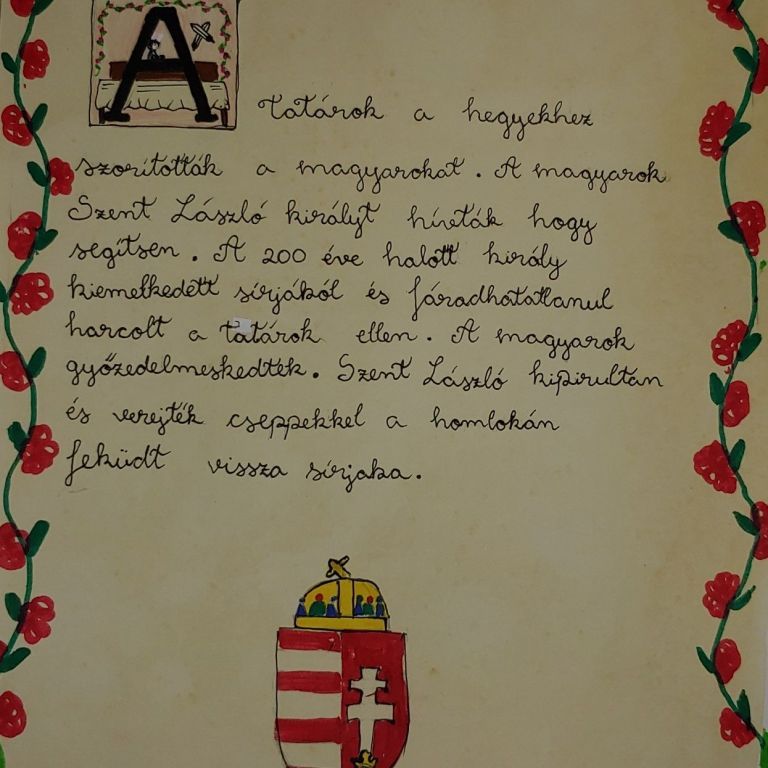 A Tatárok a hegyekhez
szorították a magyarokat. A magyarok
Szent László királyt hívták hogy
segítsen. A 200 éve halott király
kiemelkedett sírjából és fáradhatatlanul
harcolt a tatárok ellen. A magyarok
győzedelmeskedtek. Szent László kipirultan
és verejték cseppekkel a homlokán
feküdt vissza sírjaba.